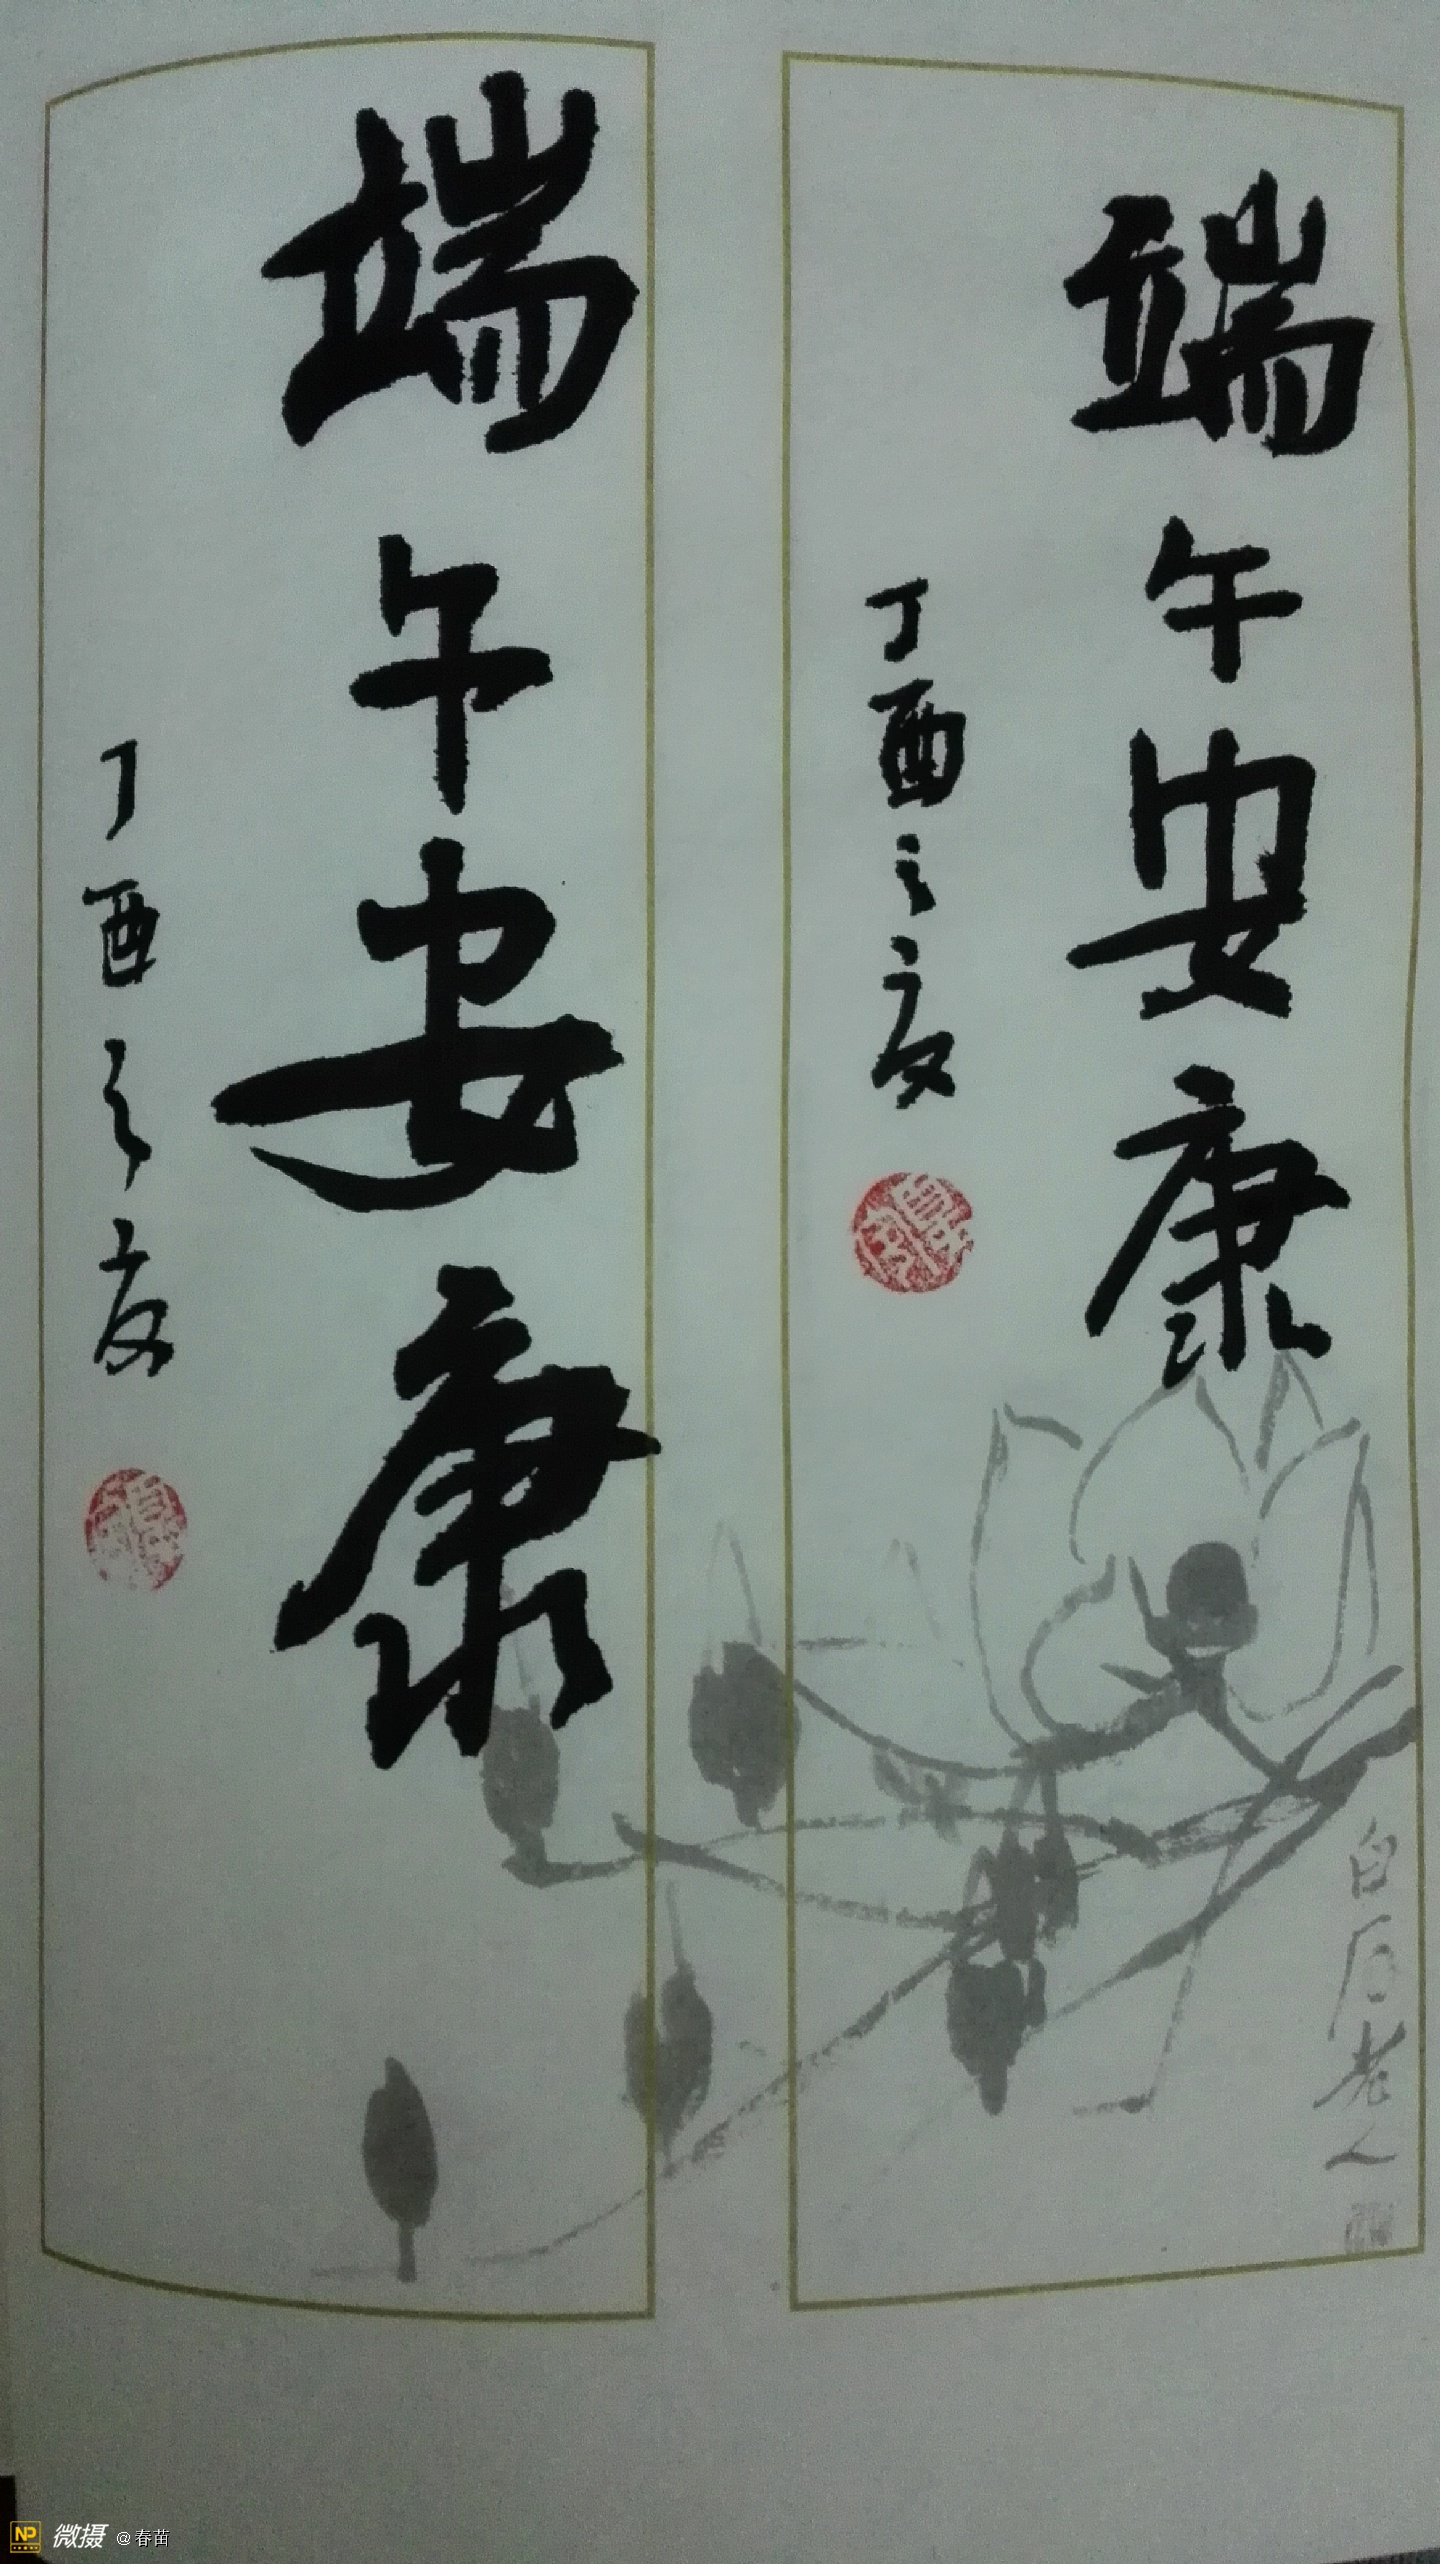 端午安康
丁酉之夏
白石老人
端午安康
丁酉之夏
NP 微摄 @春苗